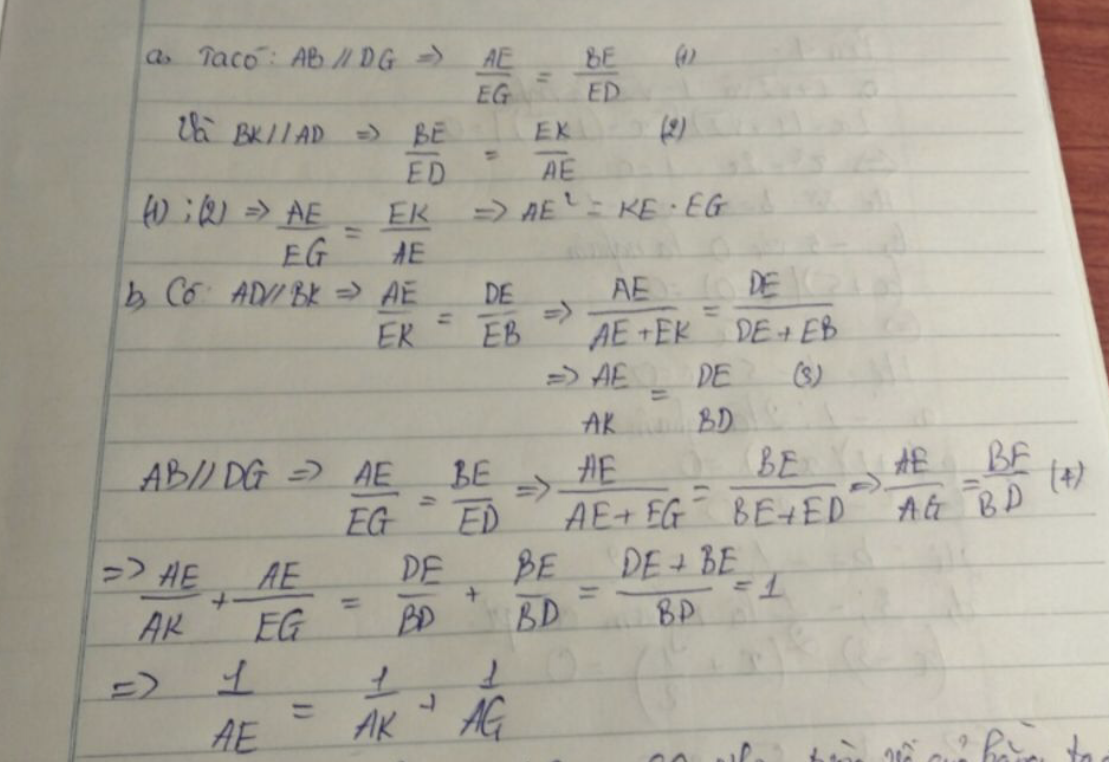 a, Ta có: AB // DG => AE/EG = BE/ED (1)
Và BK // AD => BE/ED = EK/AE (2)
(1); (2) => AE/EG = EK/AE => AE² = KE . EG
b, Có AD // BK => AE/EK = DE/EB => AE/(AE + EK) = DE/(DE + EB)
=> AE/AK = DE/BD (3)
AB // DG => AE/EG = BE/ED => AE/(AE + EG) = BE/(BE + ED) => AE/AG = BE/BD (4)
=> AE/AK + AE/EG = DE/BD + BE/BD = (DE + BE)/BD = 1
=> 1/AE = 1/AK + 1/AG